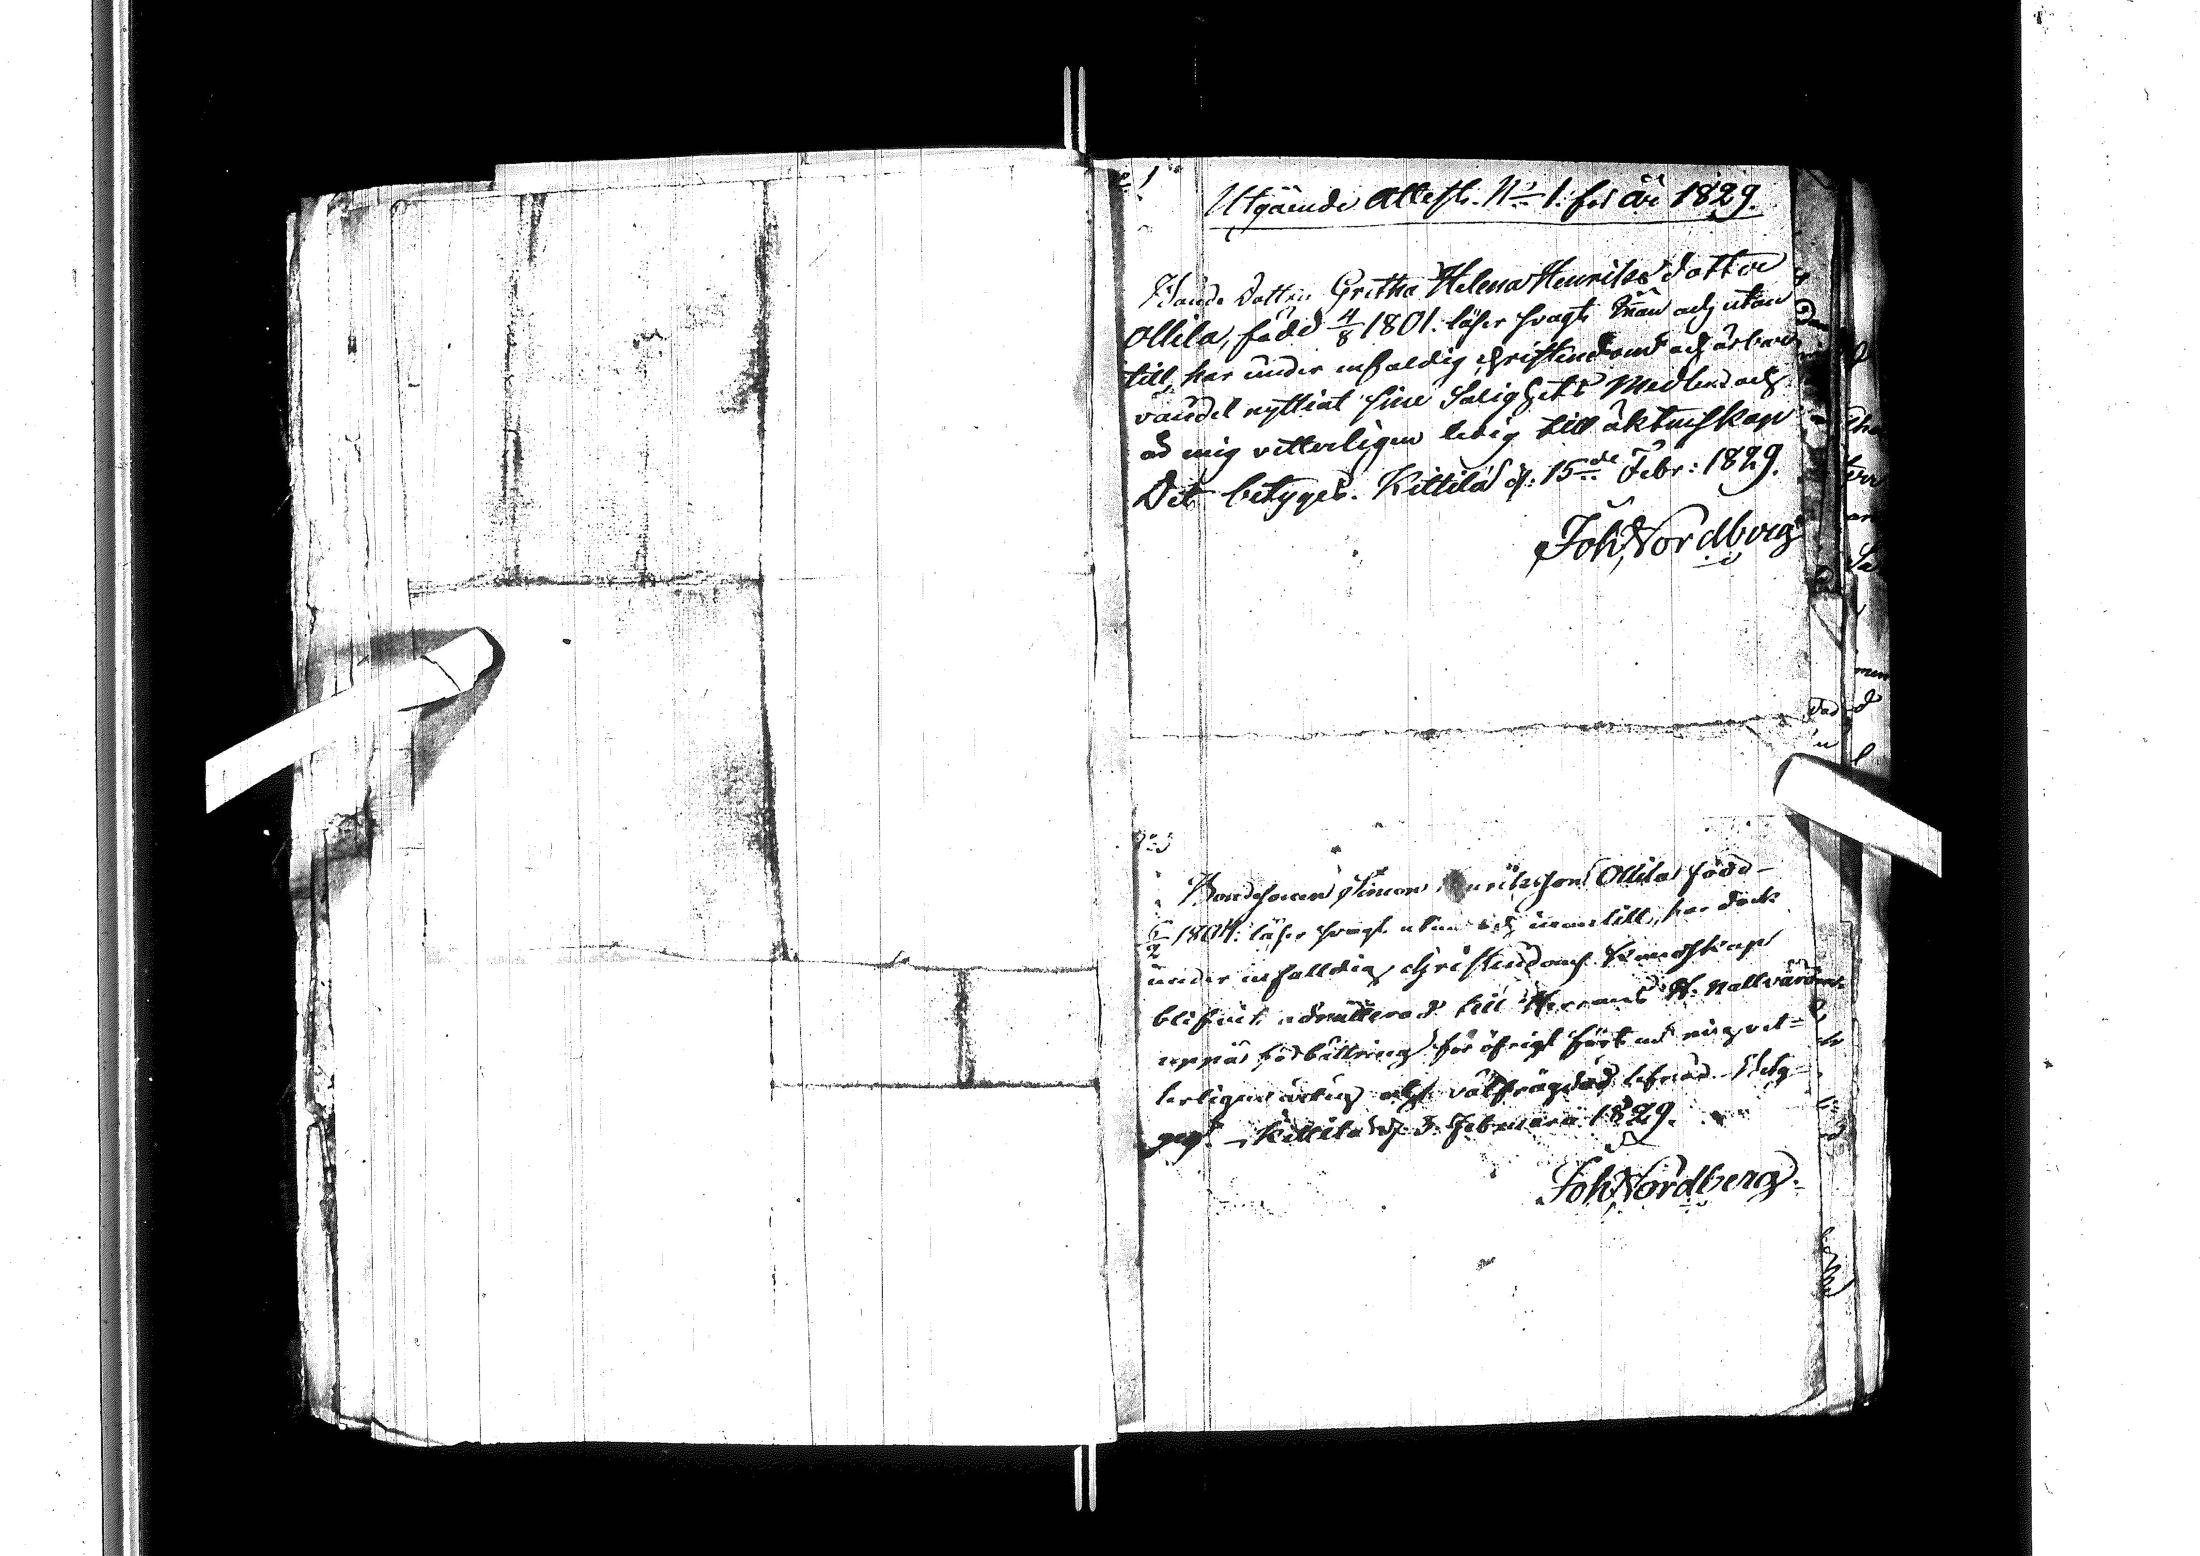 Utgående Attest. No 1. för år 1829.
Bonde Dottren Gretha Helena Henriksdotter
Ollila, född 4/8 1801. läser svagt innan och utan
till, har under enfaldig christendoms och ärbar
vandel nyttiat sine Salighets Medlen och
är mig vetterligen ledig till äktenskap
Det betyges. Kittilä d. 15de Febr: 1829.
Joh Nordberg
Bondesonen Simon Henriksson Ollila född
1804. läser svagt utan och innantill, har dock
under enfalldig christendoms kundskap
blifvit admitterad till Herrans H. Nattvard
uppå förbättring för öfrigt fört mig vet-
terligen och välfrägdad lefnad Betyg-
ges. Kittilä d. 3 Februarii 1829.
Joh Nordberg.